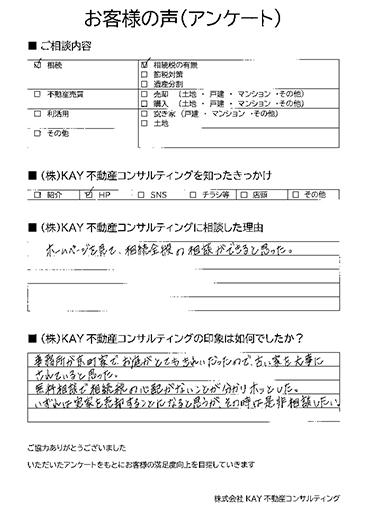 お客様の声(アンケート)
■ ご相談内容
☑ 相続 ☑ 相続税の有無
□ 節税対策
□ 遺産分割
□ 不動産売買 □ 売却 (土地 ・ 戸建 ・ マンション ・その他)
□ 購入 (土地 ・ 戸建 ・ マンション ・その他)
□ 利活用 □ 空き家 (戸建 ・ マンション ・その他)
□ 土地
□ その他
■ (株)KAY 不動産コンサルティングを知ったきっかけ
□ 紹介 ☑ HP □ SNS □ チラシ等 □ 店頭 □ その他
■ (株)KAY 不動産コンサルティングに相談した理由
ホームページを見て、相続全般の相談ができると思った。
■ (株)KAY 不動産コンサルティングの印象は如何でしたか?
事務所が京町家でお庭がとてもきれいだったので、古い家を大事に
されていると思った。
無料相談で相続税の心配がないことが分かりホッとした。
いずれは実家を売却することになると思うが、その時は是非相談したい。
ご協力ありがとうございました
いただいたアンケートをもとにお客様の満足度向上を目指していきます
株式会社 KAY 不動産コンサルティング